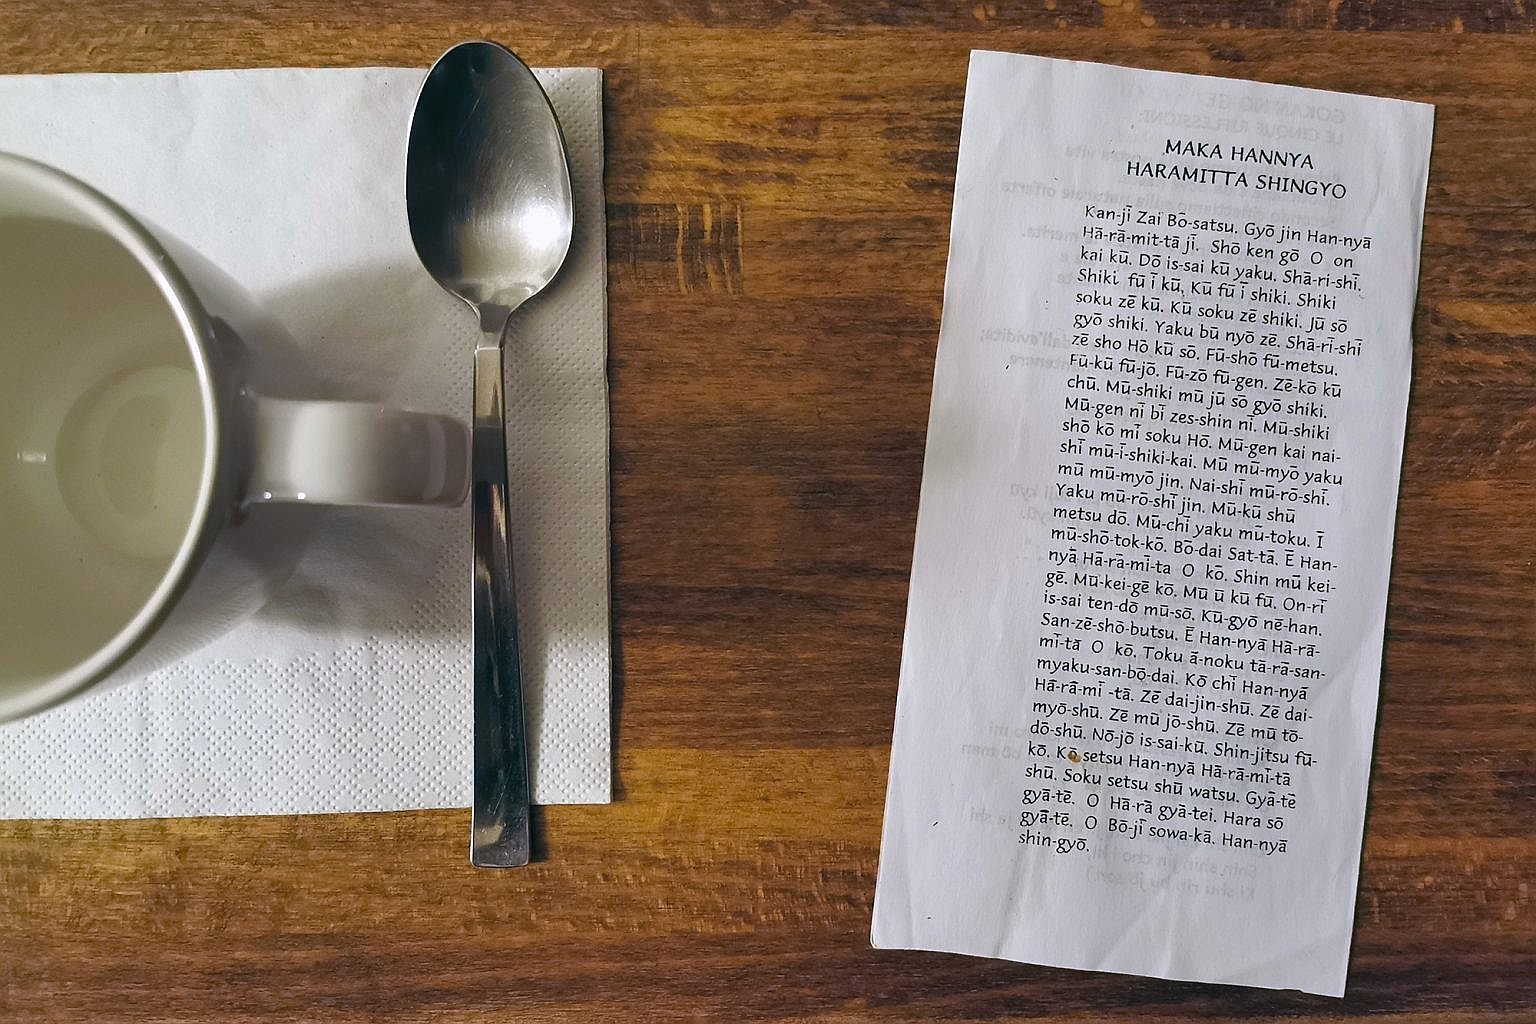 MAKA HANNYA
HARAMITTA SHINGYO
Kan-jī Zai Bō-satsu. Gyō jin Han-nyā
Hā-rā-mit-tā jī. Shō ken gō O on
kai kū. Dō is-sai kū yaku. Shā-ri-shī.
Shiki fū ī kū, Kū fū ī shiki. Shiki
soku zē kū. Kū soku zē shiki. Jū sō
gyō shiki. Yaku bū nyō zē. Shā-rī-shi
zē sho Hō kū sō. Fū-shō fū-metsu.
Fū-kū fū-jō. Fū-zō fū-gen. Zē-kō kū
chū. Mū-shiki mū jū sō gyō shiki.
Mū-gen nī bī zes-shin nī. Mū-shiki
shō kō mī soku Hō. Mū-gen kai nai-
shī mū-ī-shiki-kai. Mū mū-myō yaku
mū mū-myō jin. Nai-shī mū-rō-shī.
Yaku mū-rō-shī jin. Mū-kū shū
metsu dō. Mū-chī yaku mū-toku. Ī
mū-shō-tok-kō. Bō-dai Sat-tā. Ē Han-
nyā Hā-rā-mi-ta O kō. Shin mū kei-
gē. Mū-kei-gē kō. Mū ū kū fū. On-rī
is-sai ten-dō mū-sō. Kū-gyō nē-han.
San-zē-shō-butsu. Ē Han-nyā Hā-rā-
mī-tā O kō. Toku ā-noku tā-rā-san-
myaku-san-bō-dai. Kō chī Han-nyā
Hā-rā-mī -tā. Zē dai-jin-shū. Zē dai-
myō-shū. Zē mū jō-shū. Zē mū tō-
dō-shū. Nō-jō is-sai-kū. Shin-jitsu fū-
kō. Kō setsu Han-nyā Hā-rā-mī-tā
shū. Soku setsu shū watsu. Gyā-tē
gyā-tē. O Hā-rā gyā-tei. Hara sō
gyā-tē. O Bō-jī sowa-kā. Han-nyā
shin-gyō.